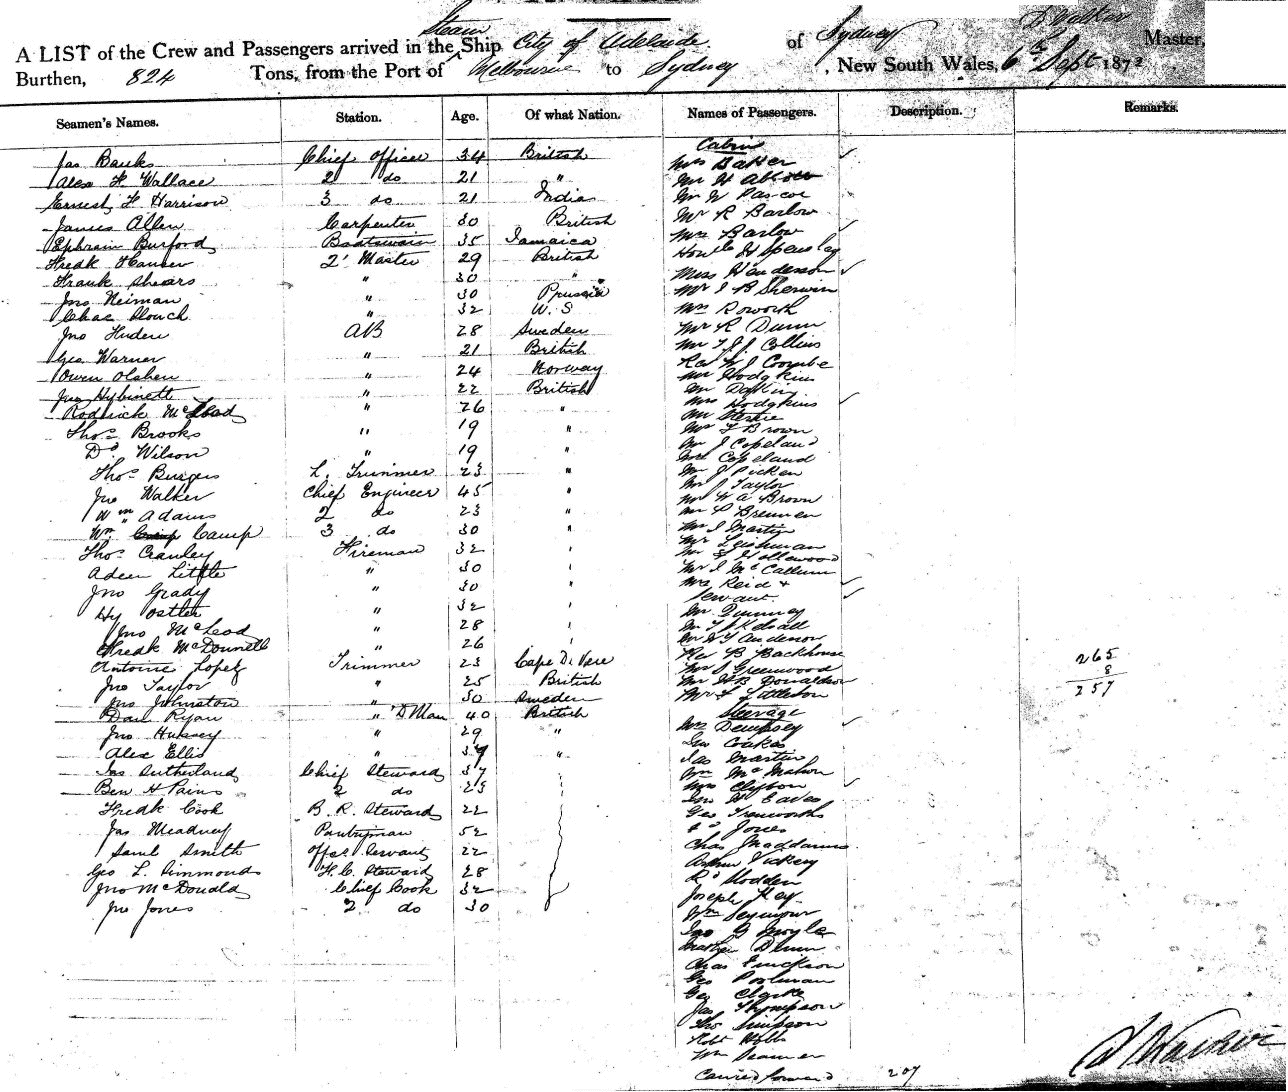 A LIST of the Crew and Passengers arrived in the Steam Ship City of Adelaide of Sydney D Walker Master,
Burthen, 824 Tons, from the Port of Melbourne to Sydney, New South Wales, 6th Sept 1872
Seamen's Names. Station. Age. Of what Nation. Names of Passengers. Description. Remarks.
Cabin
Jas Banks Chief Officer 34 British Mrs Baker
Alex F Wallace 2 do 21 " Mr H
Ernest F Harrison 3 do 21 India Mr W Pascoe
James Allen Carpenter 30 British Mr R Barlow
Ephraim Burford Boatswain 35 Jamaica Mrs Barlow
Fredk Hansen 2r Master 29 British Honble H
Frank Shears " 30 " Miss Henderson
Jno Neiman " 30 Prussia Mr J B Sherwin
Chas " 32 W. S Mrs Roworth
Jno AB 28 Sweden Mr R Dunn
Geo Warner " 21 British Mr T J J Collins
Owen Olshen " 24 Norway Rev W J Coombe
Jno Hybinett " 22 British Mr Hodgkins
Roderick McLeod " 26 " Mr
Mrs Hodgkins
Thos Brooks " 19 " Mr
Mr T Brown
Do Wilson " 19 " Mr J Copeland
Mrs Copeland
Thos Burgess L. Trimmer 23 " Mr J Picken
Mr J Taylor
Jno Walker Chief Engineer 45 " Mr W A Brown
Wm Adams 2 do 23 " Mr P Brennen
Wm Camp 3 do 30 " Mr J Martin
Thos Cranley Fireman 32 " Mr Leishman
Mr
Adam Little " 30 " Mr J McCallum
Jno Grady " 30 " Mrs Reid +
Servant
Hy Ostler " 32 " Mr
Jno McLeod " 28 " Mr T J Kelsall
Fredk McDonnell " 26 " Mr W T Anderson
Antoine Lopez Trimmer 23 Cape De Vere Rev B Backhouse 265
Mr J Greenwood 8
Jno Taylor " 25 British Mr H B Donaldson 257
Jno Johnston " 30 Sweden Mr
Dan Ryan " D Man 40 British Steerage
Jno Hussey " 29 " Mrs Dempsey
Geo Coakes
Alex Ellis " " Jas Martin
Jas Sutherland Chief Steward 37 Wm McMahon
Ben H Pains 2 do 23 Mrs Clifton
Fredk Cook B. R. Steward 22 Jno W Eaves
Geo
Jas Meadney Pantryman 52 Jones
Saml Smith Offrs Servant 22 Chas Maddams
Geo L. Simmonds F. C. Steward 28 Arthur Vickery
Jno McDonald Chief Cook 32 Rd Hodden
Jno Jones 2 do 30 Joseph Key
Wm Seymour
Jno G Moyle
Dunn
Chas Erickson
Geo Portman
Geo Clarke
Jas Thompson
Thos Simpson
Robt Hobbs
Wm
Carried forward 207
D Walker